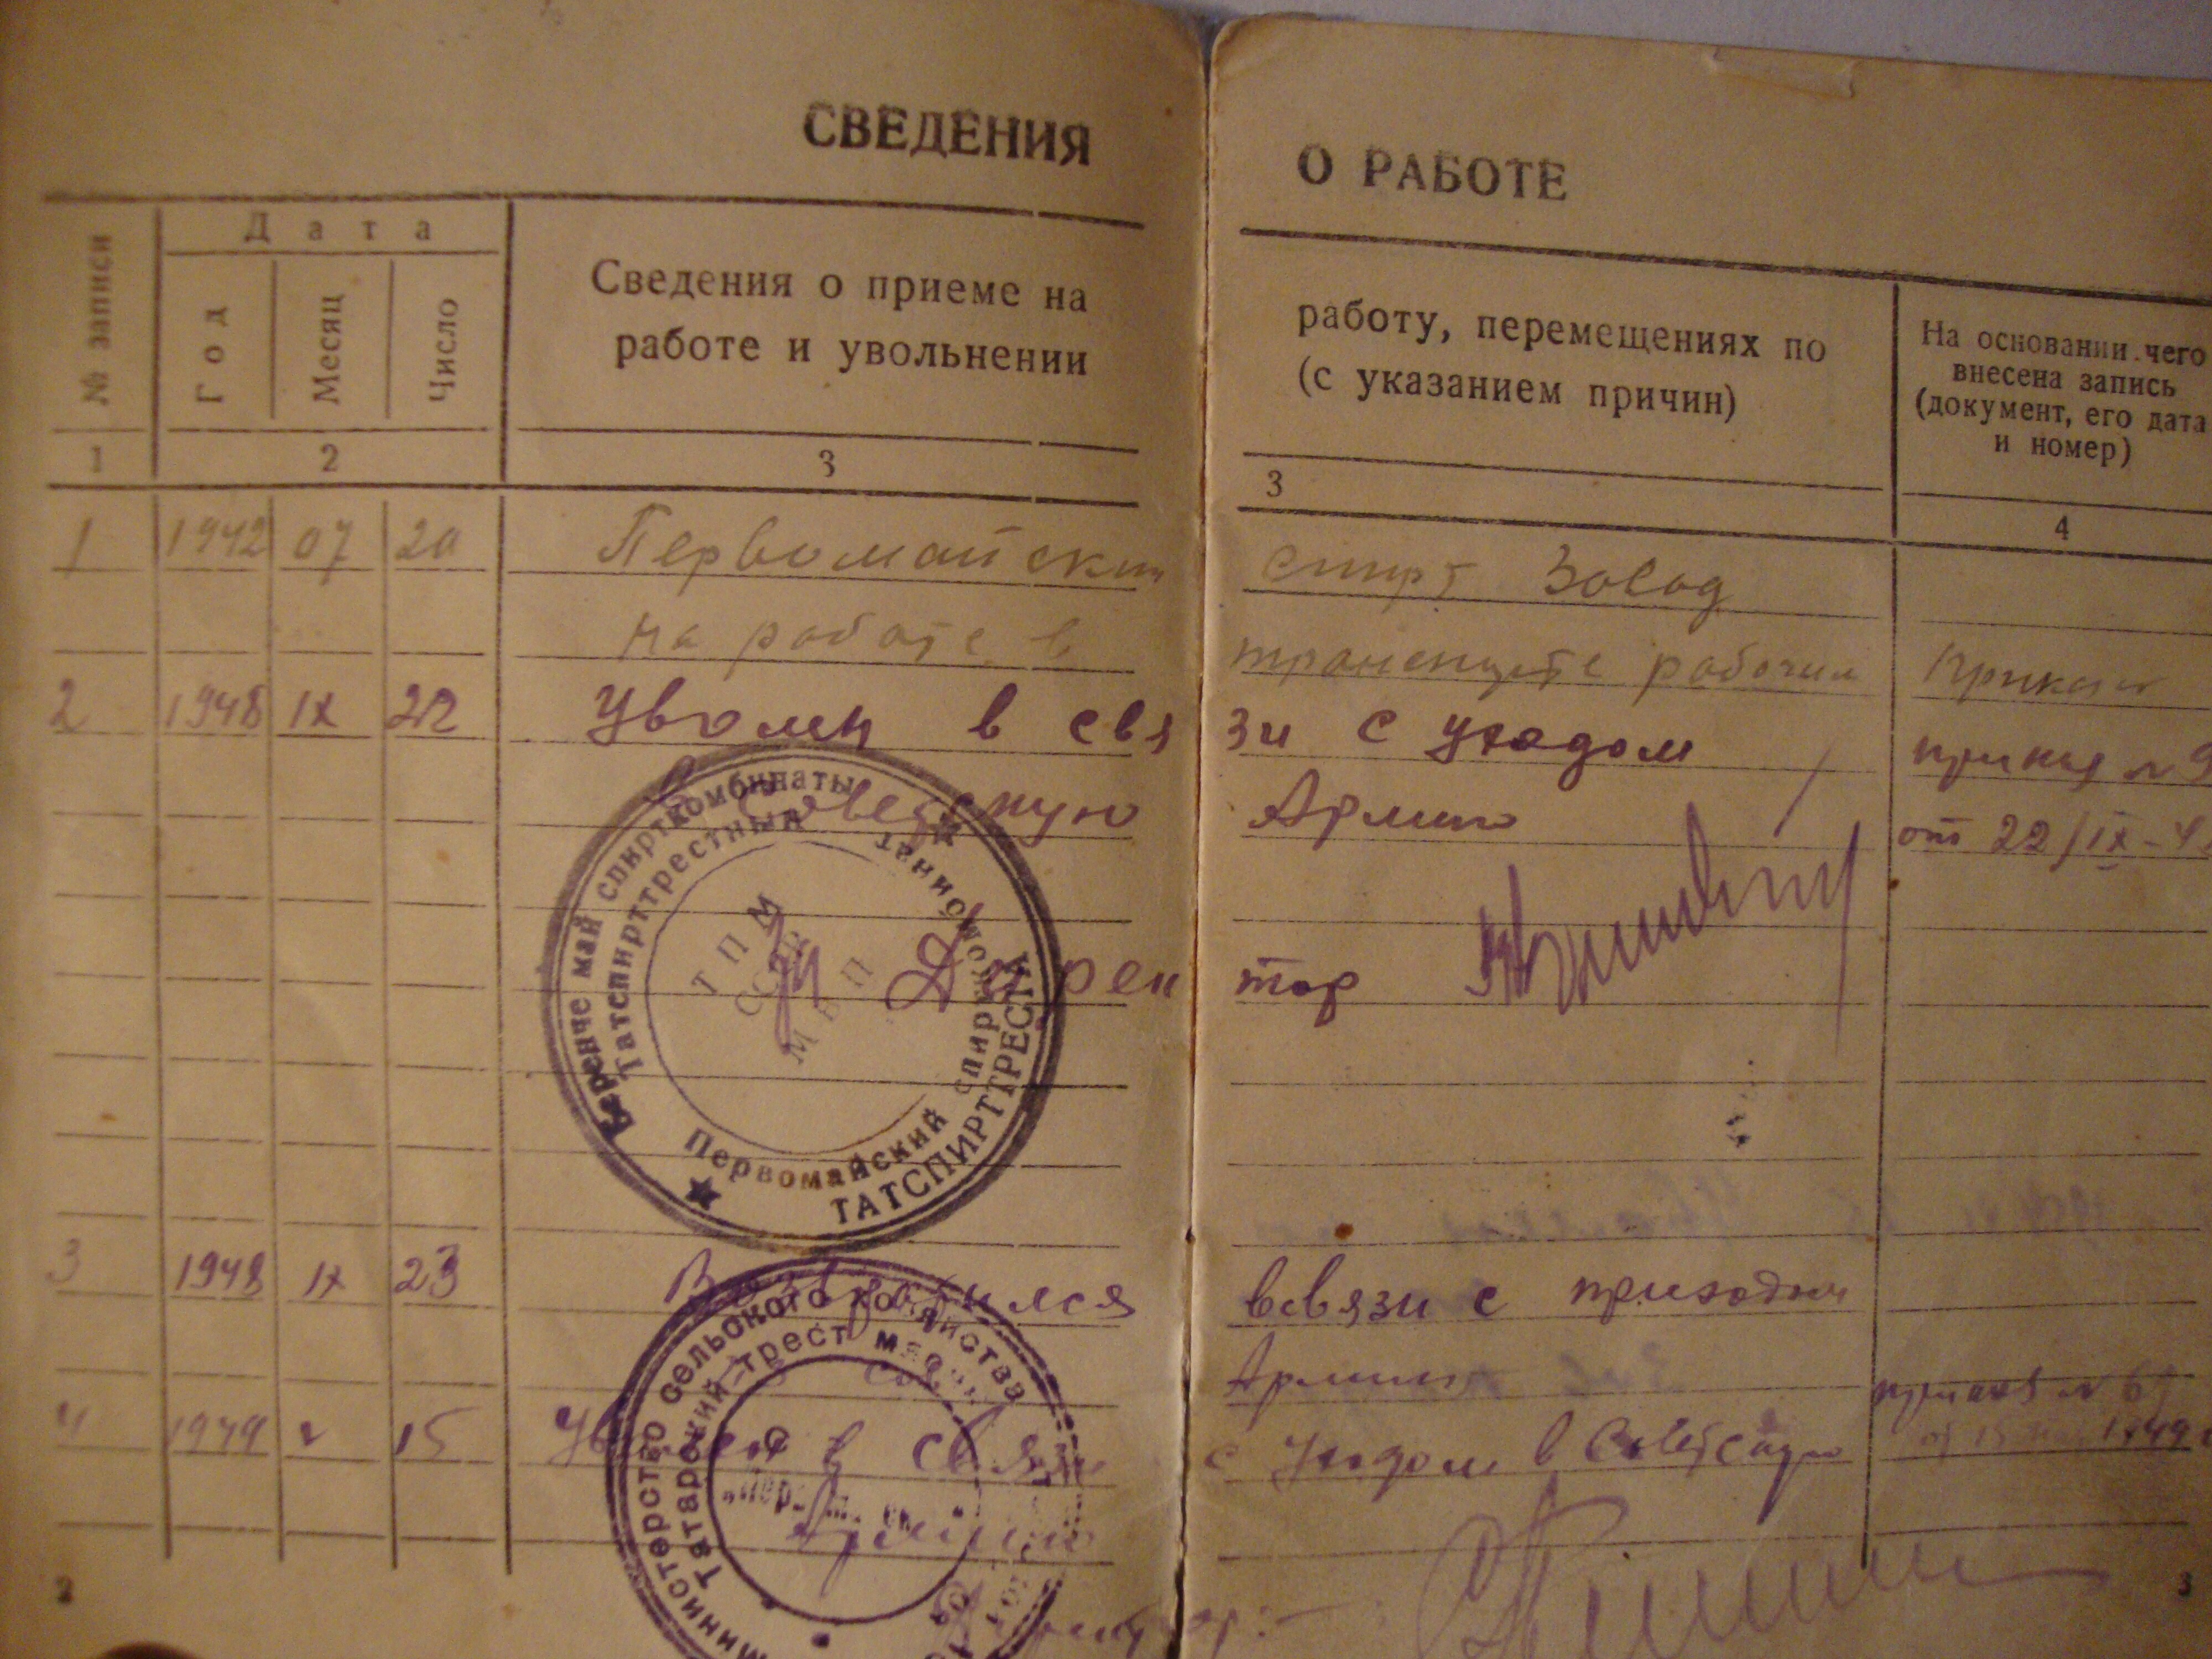 СВЕДЕНИЯ О РАБОТЕ
№ записи
Дата
Год
Месяц
Число
Сведения о приеме на работу, перемещениях по
работе и увольнении (с указанием причин)
На основании чего
внесена запись
(документ, его дата
и номер)
1 2 3 3 4
1 1942 07 20 Первомайский спирт Завод
на работе в транспорте рабочим Приказ
2 1948 IX 22 Уволен в связи с уходом приказ №
в Советскую Армию от 22/IX-4
Директор
Беренче май спирткомбинаты
Татспирттрестның
Первомайский спиртокомбинат
ТАТСПИРТТРЕСТА
ТПМ
СССР
МПП
3 1948 IX 23 Возвратился в связи с приходом
Армии
приказ № 6
4 1949 15 Уволен в связи с уходом в Советскую
1949
Армию
Директор:
Министерство сельского хозяйства
Татарский трест
2
3